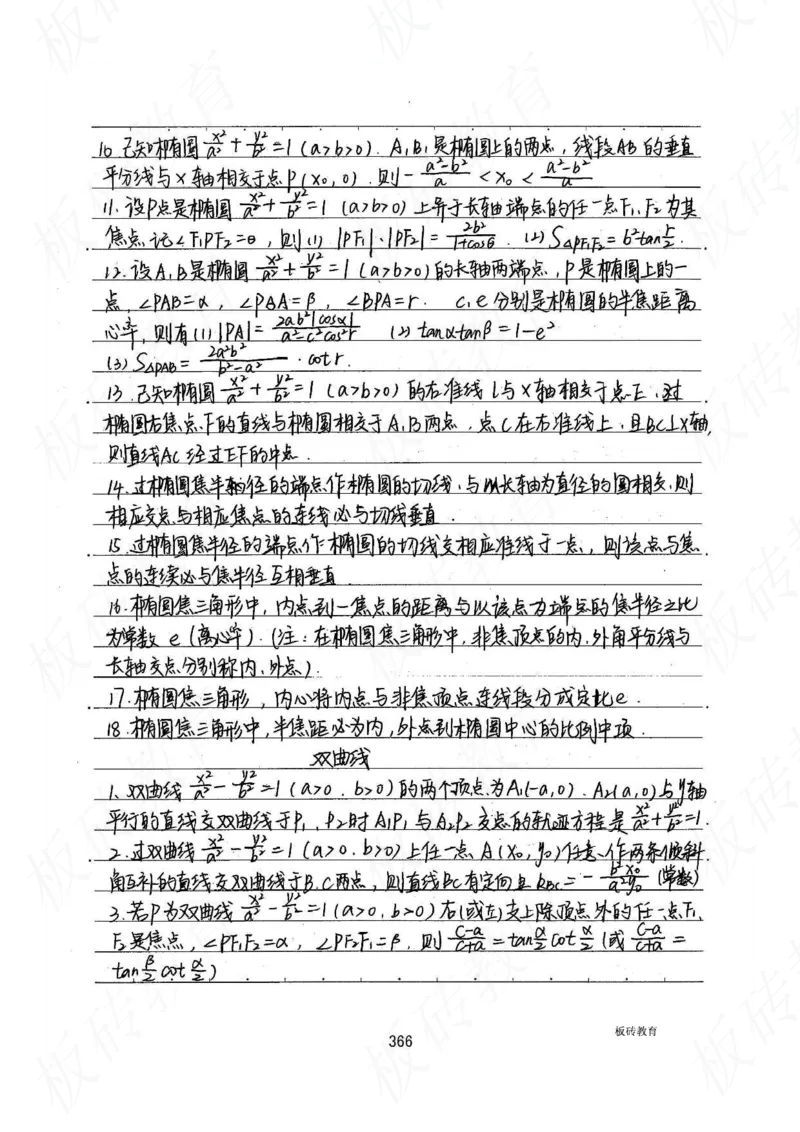 10. 已知椭圆 x²/a² + y²/b² = 1 (a>b>0). A, B, 是椭圆上的两点, 线段AB的垂直
平分线与x轴相交于点P(x₀, 0). 则 -(a²-b²)/a < x₀ < (a²-b²)/a
11. 设P点是椭圆 x²/a² + y²/b² = 1 (a>b>0) 上异于长轴端点的任一点F₁, F₂为其
焦点记∠F₁PF₂=θ, 则(1) |PF₁|·|PF₂| = 2b²/(1+cosθ). (2) S△PF₁F₂ = b²tan r/2.
12. 设A, B是椭圆 x²/a² + y²/b² = 1 (a>b>0)的长轴两端点, P是椭圆上的一
点, ∠PAB=α, ∠PBA=β, ∠BPA=r. c, e分别是椭圆的半焦距离
心率, 则有(1) |PA| = 2ab²|cosα|/(a²-c²cos²r) (2) tanαtanβ=1-e²
(3) S△PAB = 2a²b²/(b²-a²) · cot r.
13. 已知椭圆 x²/a² + y²/b² = 1 (a>b>0) 的右准线l与x轴相交于点E, 过
椭圆右焦点F的直线与椭圆相交于A, B两点, 点C在右准线上, 且BC⊥x轴,
则直线AC经过EF的中点.
14. 过椭圆焦半径的端点作椭圆的切线, 与以长轴为直径的圆相交, 则
相应交点与相应焦点的连线必与切线垂直.
15. 过椭圆焦半径的端点作椭圆的切线交相应准线于一点, 则该点与焦
点的连线必与焦半径互相垂直
16. 椭圆焦三角形中, 内点到一焦点的距离与以该点为端点的焦半径之比
为常数 e (离心率). (注: 在椭圆焦三角形中, 非焦顶点的内, 外角平分线与
长轴交点分别称内, 外点.)
17. 椭圆焦三角形, 内心将内点与非焦顶点连线段分成定比e.
18. 椭圆焦三角形中, 半焦距必为内, 外点到椭圆中心的比例中项.
双曲线
1. 双曲线 x²/a² - y²/b² = 1 (a>0, b>0) 的两个顶点为A₁(-a, 0), A₂(a, 0) 与y轴
平行的直线交双曲线于P₁, P₂时A₁P₁与A₂P₂交点的轨迹方程是 x²/a² + y²/b² = 1.
2. 过双曲线 x²/a² - y²/b² = 1 (a>0, b>0) 上任一点A(x₀, y₀)任意作两条倾斜
角互补的直线交双曲线于B, C两点, 则直线BC有定向且 kBC = - b²x₀/a²y₀ (常数)
3. 若P为双曲线 x²/a² - y²/b² = 1 (a>0, b>0) 右(或左)支上除顶点外的任一点F₁,
F₂是焦点, ∠PF₁F₂=α, ∠PF₂F₁=β, 则 (c-a)/(c+a) = tan α/2 cot α/2 (或 (c-a)/(c+a) =
tan β/2 cot α/2)
366
板砖教育